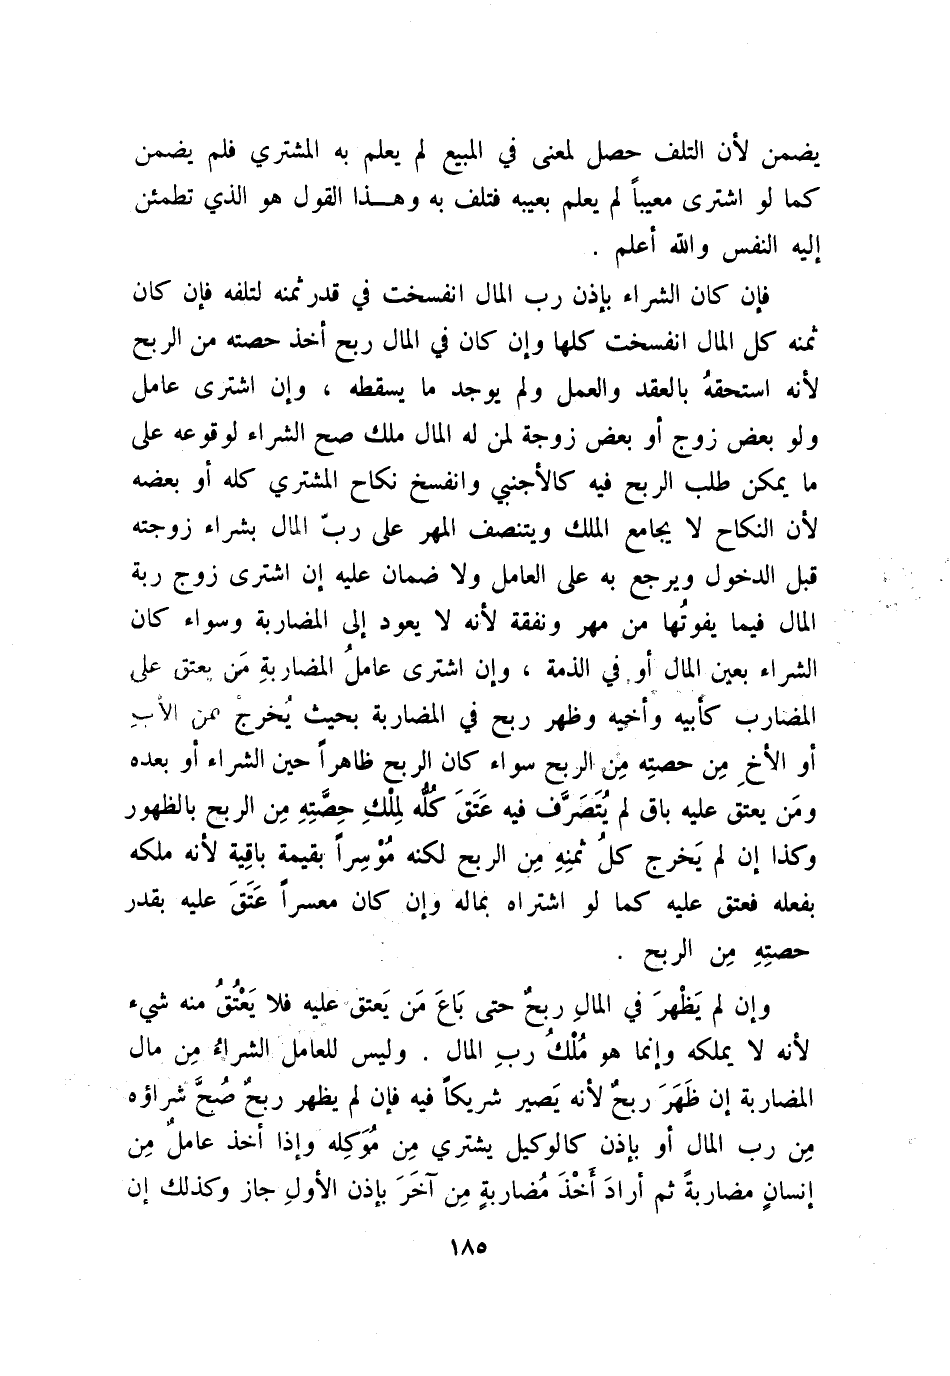 يضمن لأن التلف حصل لمعنى في المبيع لم يعلم به المشتري فلم يضمن
كما لو اشترى معيباً لم يعلم بعيبه فتلف به وهـــذا القول هو الذي تطمئن
إليه النفس والله أعلم .
فإن كان الشراء بإذن رب المال انفسخت في قدر ثمنه لتلفه فإن كان
ثمنه كل المال انفسخت كلها وإن كان في المال ربح أخذ حصته من الربح
لأنه استحقهُ بالعقد والعمل ولم يوجد ما يسقطه ، وإن اشترى عامل
ولو بعض زوج أو بعض زوجة لمن له المال ملك صح الشراء لوقوعه على
ما يمكن طلب الربح فيه كالأجنبي وانفسخ نكاح المشتري كله أو بعضه
لأن النكاح لا يجامع الملك ويتنصف المهر على ربّ المال بشراء زوجته
قبل الدخول ويرجع به على العامل ولا ضمان عليه إن اشترى زوج ربة
المال فيما يفوتُها من مهر ونفقة لأنه لا يعود إلى المضاربة وسواء كان
الشراء بعين المال أو في الذمة ، وإن اشترى عاملُ المضاربةِ مَن يعتق على
المضارب كأبيه وأخيه وظهر ربح في المضاربة بحيث يُخرج ثمن الأبِ
أو الأخِ مِن حصتِه مِن الربح سواء كان الربح ظاهراً حين الشراء أو بعده
ومَن يعتق عليه باق لم يُتَصَرَّف فيه عَتَقَ كُلُّه لِملْكِ حِصَّتِهِ مِن الربح بالظهور
وكذا إن لم يَخرج كلُ ثمنِهِ مِن الربح لكنه مُوْسِراً بقيمةِ باقِية لأنه ملكه
بفعله فعتق عليه كما لو اشتراه بماله وإن كان معسراً عَتَقَ عليه بقدر
حصتِهِ مِن الربح .
وإن لم يَظْهرَ في المالِ ربحٌ حتى بَاعَ مَن يَعتق عليه فلا يَعْتُقُ منه شيء
لأنه لا يملكه وإنما هو مُلْكُ ربِ المال . وليس للعامل الشراءُ مِن مال
المضاربة إن ظَهَرَ ربحٌ لأنه يَصير شريكاً فيه فإن لم يظهر ربحٌ صُحَّ شراؤه
مِن رب المال أو بإذن كالوكيل يشتري مِن مُوَكِله وإذا أخذ عاملٌ مِن
إنسانٍ مضاربةً ثم أرادَ أَخْذَ مُضاربةٍ مِن آخَرَ بإذن الأولِ جاز وكذلك إن
١٨٥